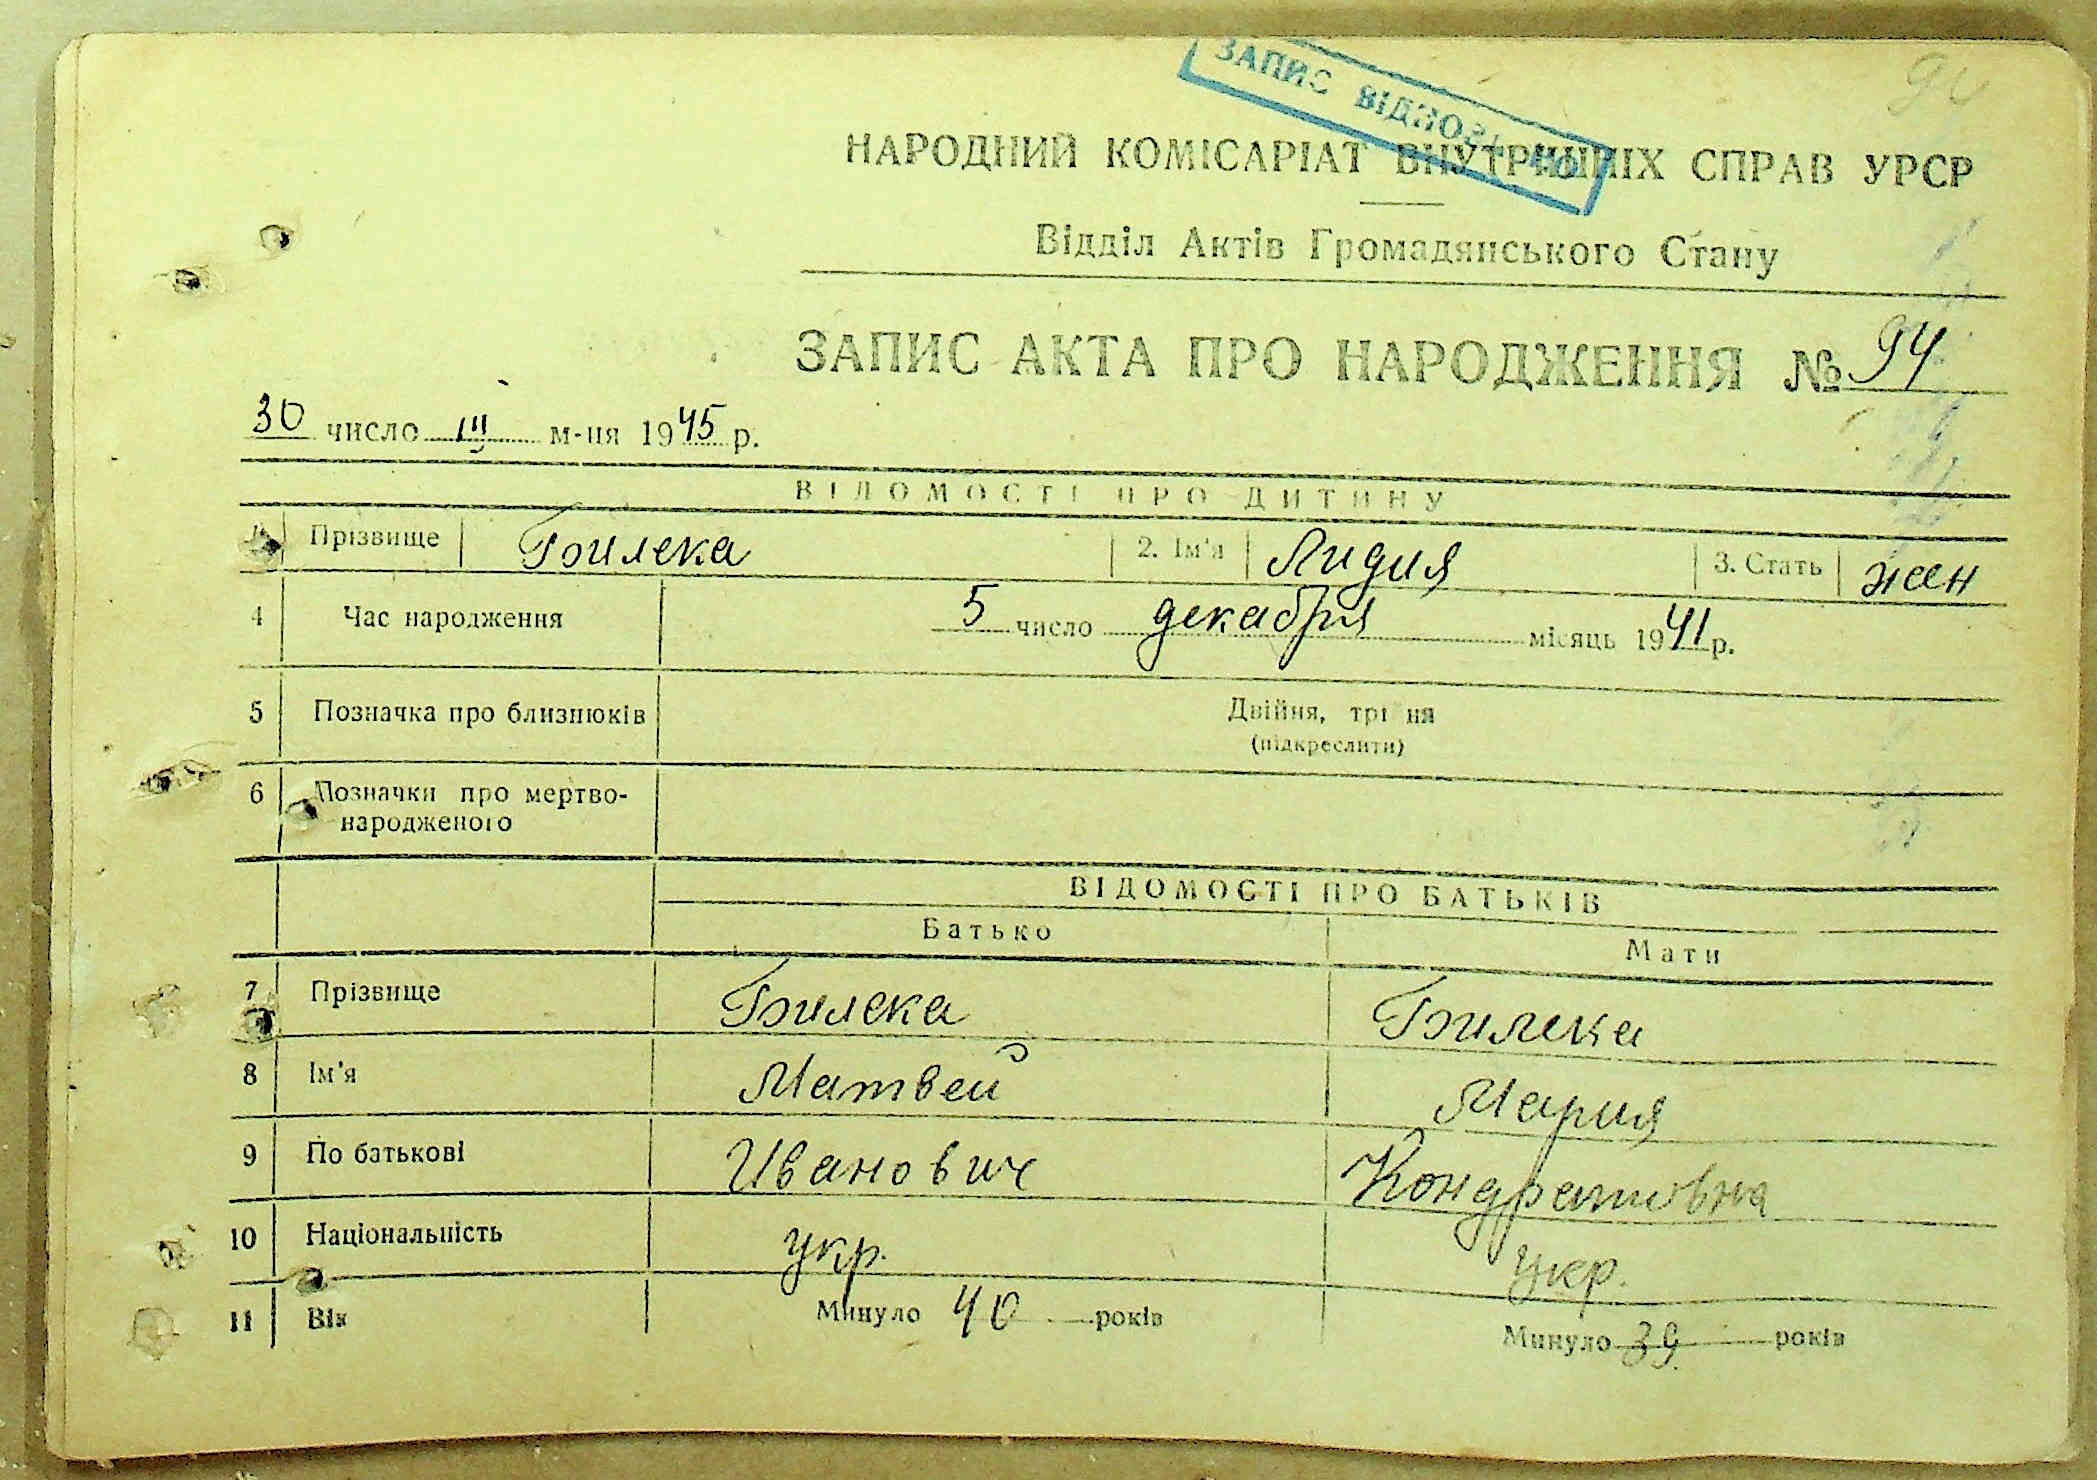 94
ЗАПИС ВІДНОВЛЕНО
НАРОДНИЙ КОМІСАРІАТ ВНУТРІШНІХ СПРАВ УРСР
Відділ Актів Громадянського Стану
ЗАПИС АКТА ПРО НАРОДЖЕННЯ № 94
30 число III м-ця 1945 р.
ВІДОМОСТІ ПРО ДИТИНУ
Прізвище Билека 2. Ім'я Лидия 3. Стать жен
4 Час народження 5 число декабря місяць 1941 р.
5 Позначка про близнюків Двійня, трійня
(підкреслити)
6 Позначки про мертво-
народженого
ВІДОМОСТІ ПРО БАТЬКІВ
Батько Мати
7 Прізвище Билека Билека
8 Ім'я Матвей Мария
9 По батькові Иванович Кондратовна
10 Національність укр. укр.
11 Вік Минуло 40 років Минуло 39 років